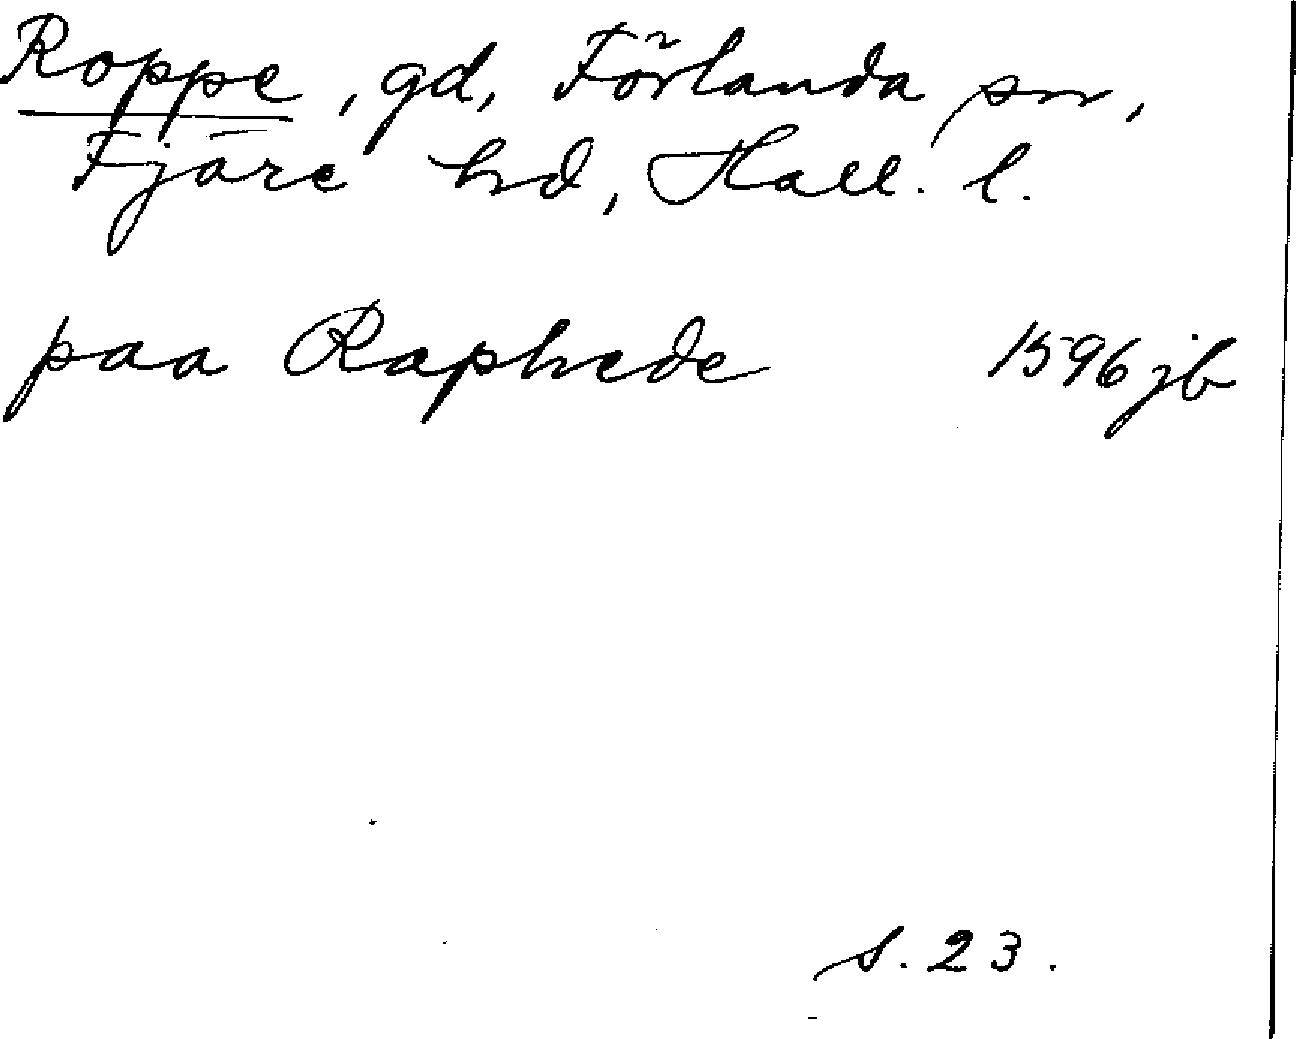 Roppe, gd, Förlanda sn,
Fjäre hd, Hall. l.
paa Raphede 1596 jb
s. 23.